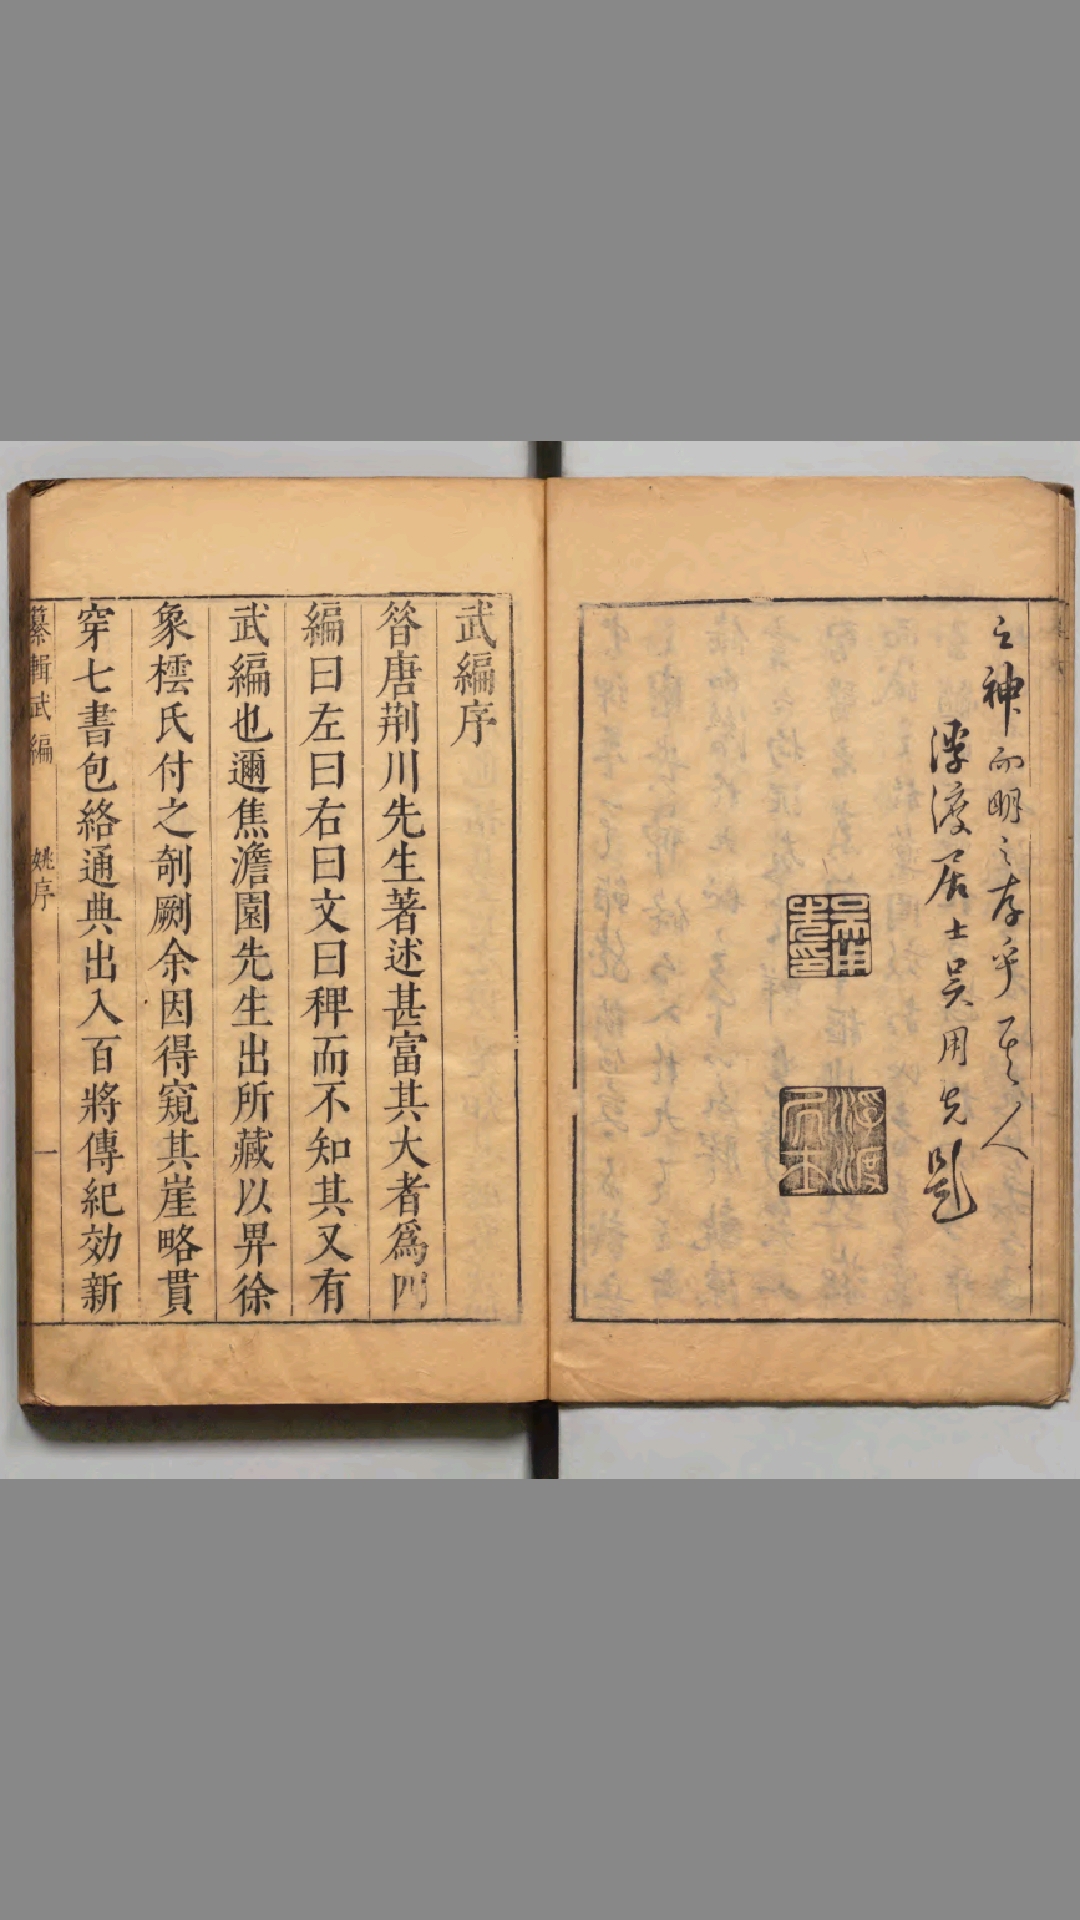 之神而明之存乎其人
浮渡居士吳用先題
吳用先印
浮渡居士
武編序
昝唐荊川先生著述甚富其大者爲四
編曰左曰右曰文曰稗而不知其又有
武編也邇焦澹園先生出所藏以畀徐
象橒氏付之剞劂余因得窺其崖略貫
穿七書包絡通典出入百將傳紀効新
纂輯武編 姚序 一